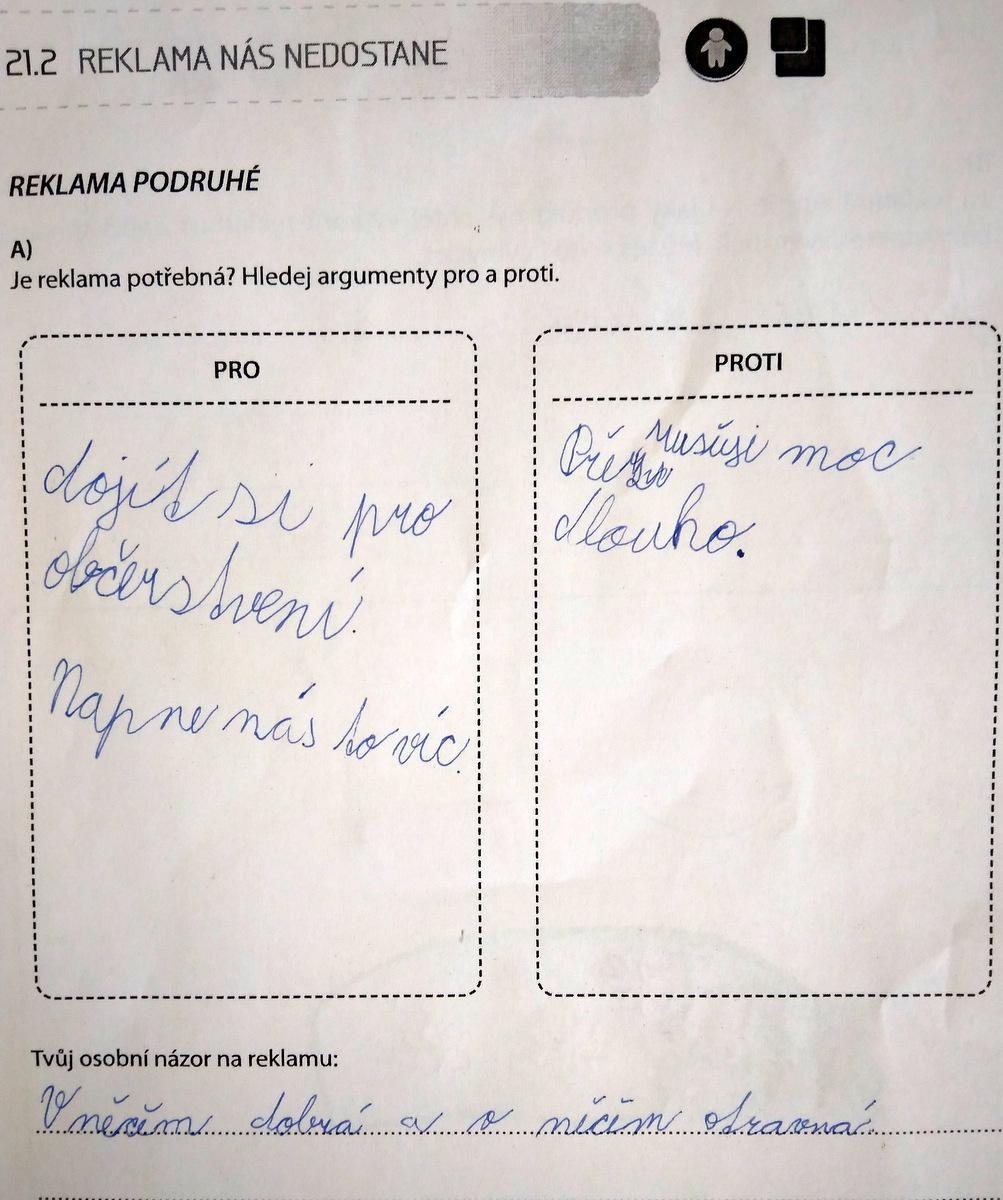 21.2 REKLAMA NÁS NEDOSTANE
REKLAMA PODRUHÉ
A)
Je reklama potřebná? Hledej argumenty pro a proti.
PRO
dojít si pro
občerstvení.
Napne nás to víc.
PROTI
moc
dlouho.
Tvůj osobní názor na reklamu:
V něčem dobrá a v něčem otravná.